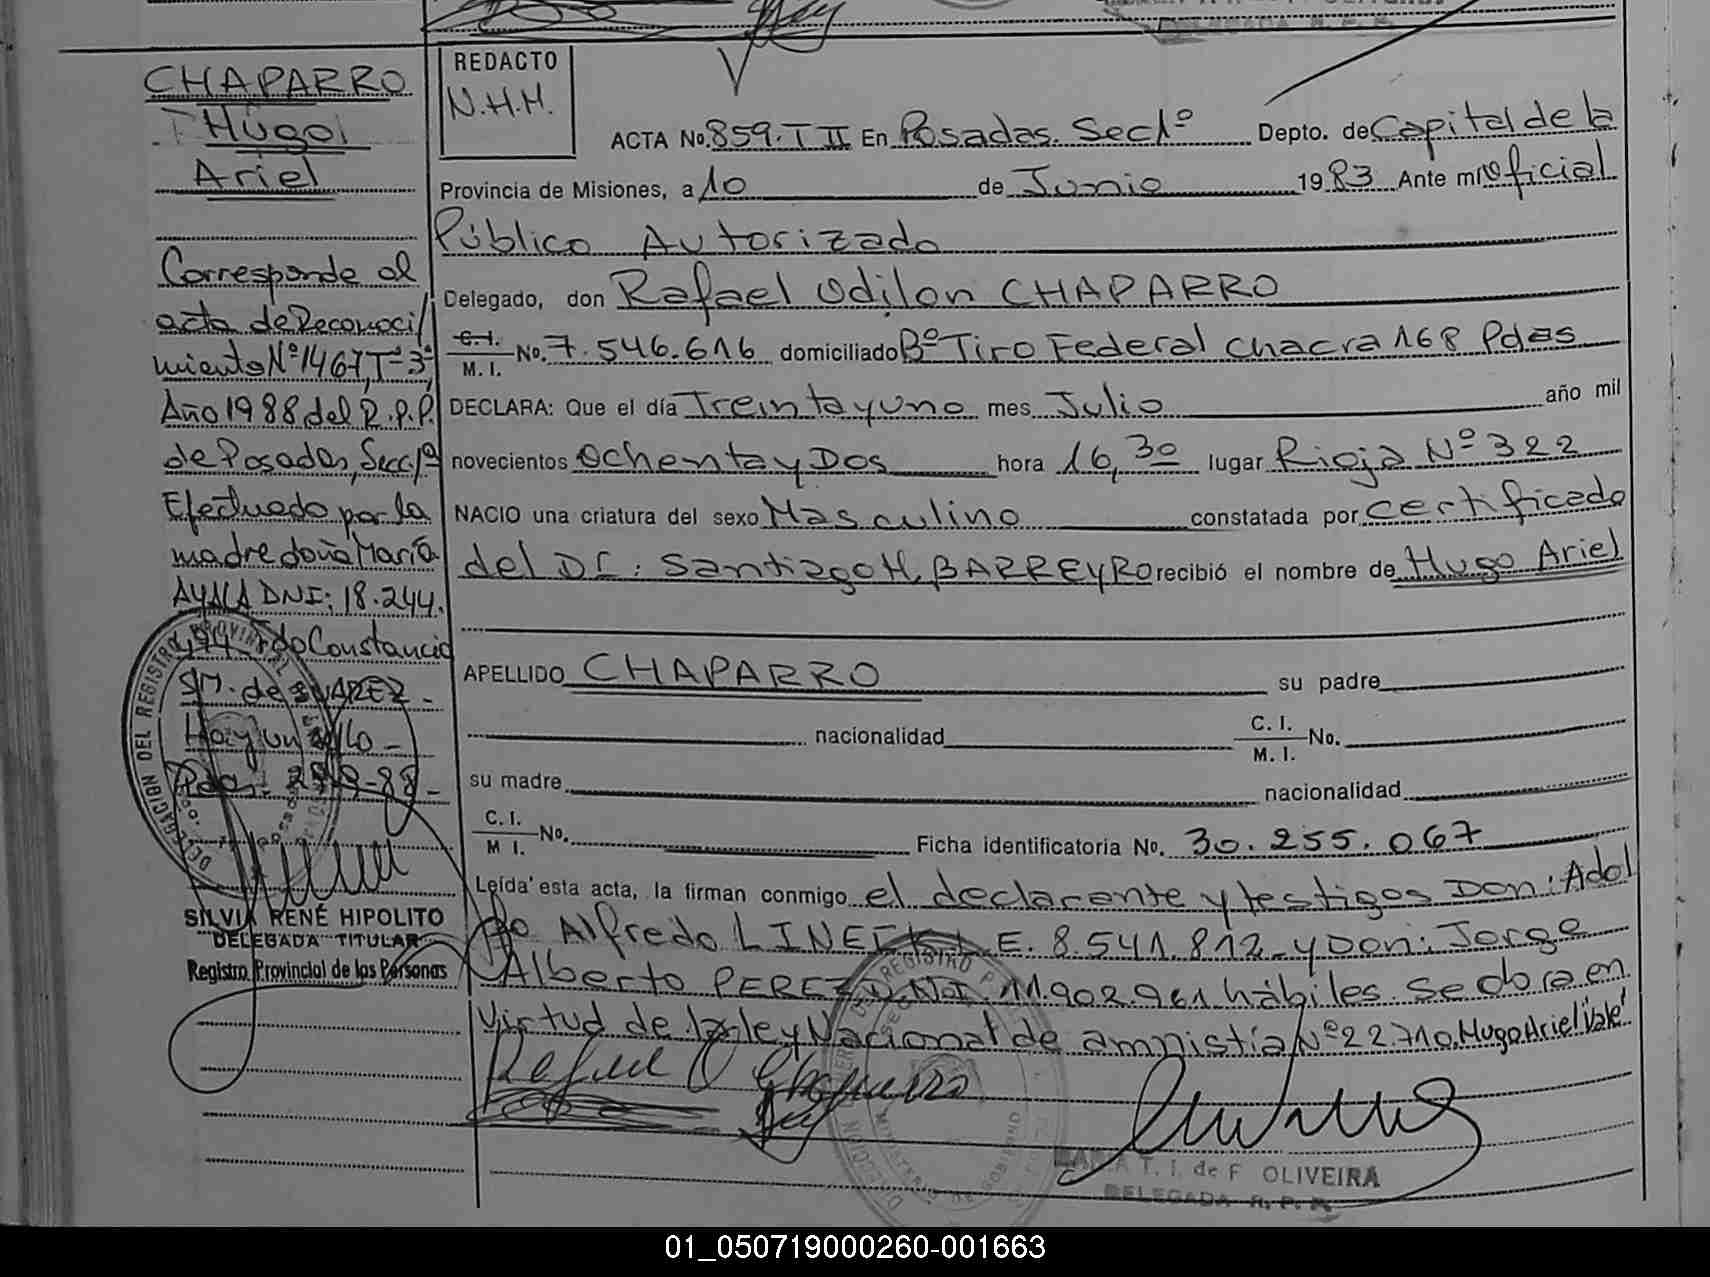 CHAPARRO
Hugo
Ariel
Corresponde al
acta de Reconoci/
miento Nº 1467, Tº 3º,
Año 1988 del R.P.P.
de Posadas, Secc. 1ª
Efectuado por la
madre doña María
AYALA DNI: 18.244.
Fdo Constancia
M. de SUAREZ -
Hay un sello -
Pdas:
SILVIA RENÉ HIPOLITO
DELEGADA TITULAR
Registro Provincial de las Personas
REDACTO
N.H.H.
ACTA No. 859. T II En Posadas. Sec 1º Depto. de Capital de la
Provincia de Misiones, a 10 de Junio 1983 Ante mi Oficial
Público Autorizado
Delegado, don Rafael Odilon CHAPARRO
C.I. M.I. No. 7.546.616 domiciliado Bº Tiro Federal chacra 168 Pdas
DECLARA: Que el día Treinta y uno mes Julio año mil
novecientos Ochenta y Dos hora 16,30 lugar Rioja Nº 322
NACIO una criatura del sexo Masculino constatada por certificado
del Dr: Santiago H. BARREYRO recibió el nombre de Hugo Ariel
APELLIDO CHAPARRO su padre
nacionalidad C. I. M. I. No.
su madre nacionalidad
C. I. M I. No. Ficha identificatoria No. 30.255.067
Leída esta acta, la firman conmigo el declarante y testigos Don: Adol
fo Alfredo L.E. 8.541.812 - y Don: Jorge
Alberto PEREZ, D.N.I. 11.902.961 hábiles. Se obra en
virtud de la ley Nacional de amnistía Nº 22.710. Hugo Ariel "Vale"
Rafael O Chaparro
T. I. de F OLIVEIRA
DELEGADA R. P. P.
01_050719000260-001663